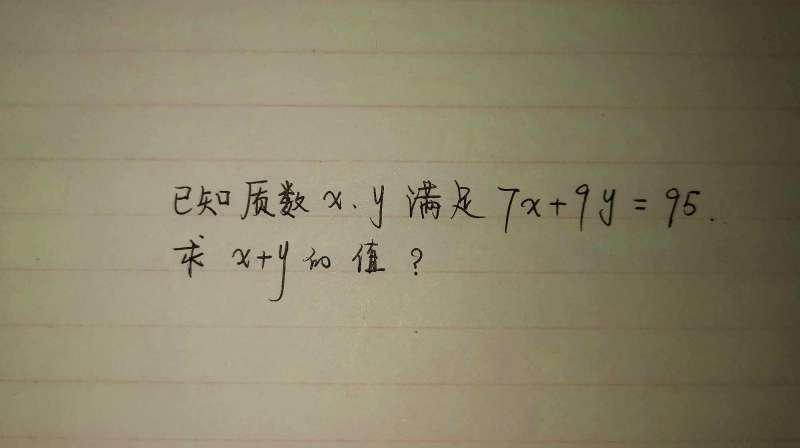 已知质数 x、y 满足 7x+9y=95.
求 x+y 的值？